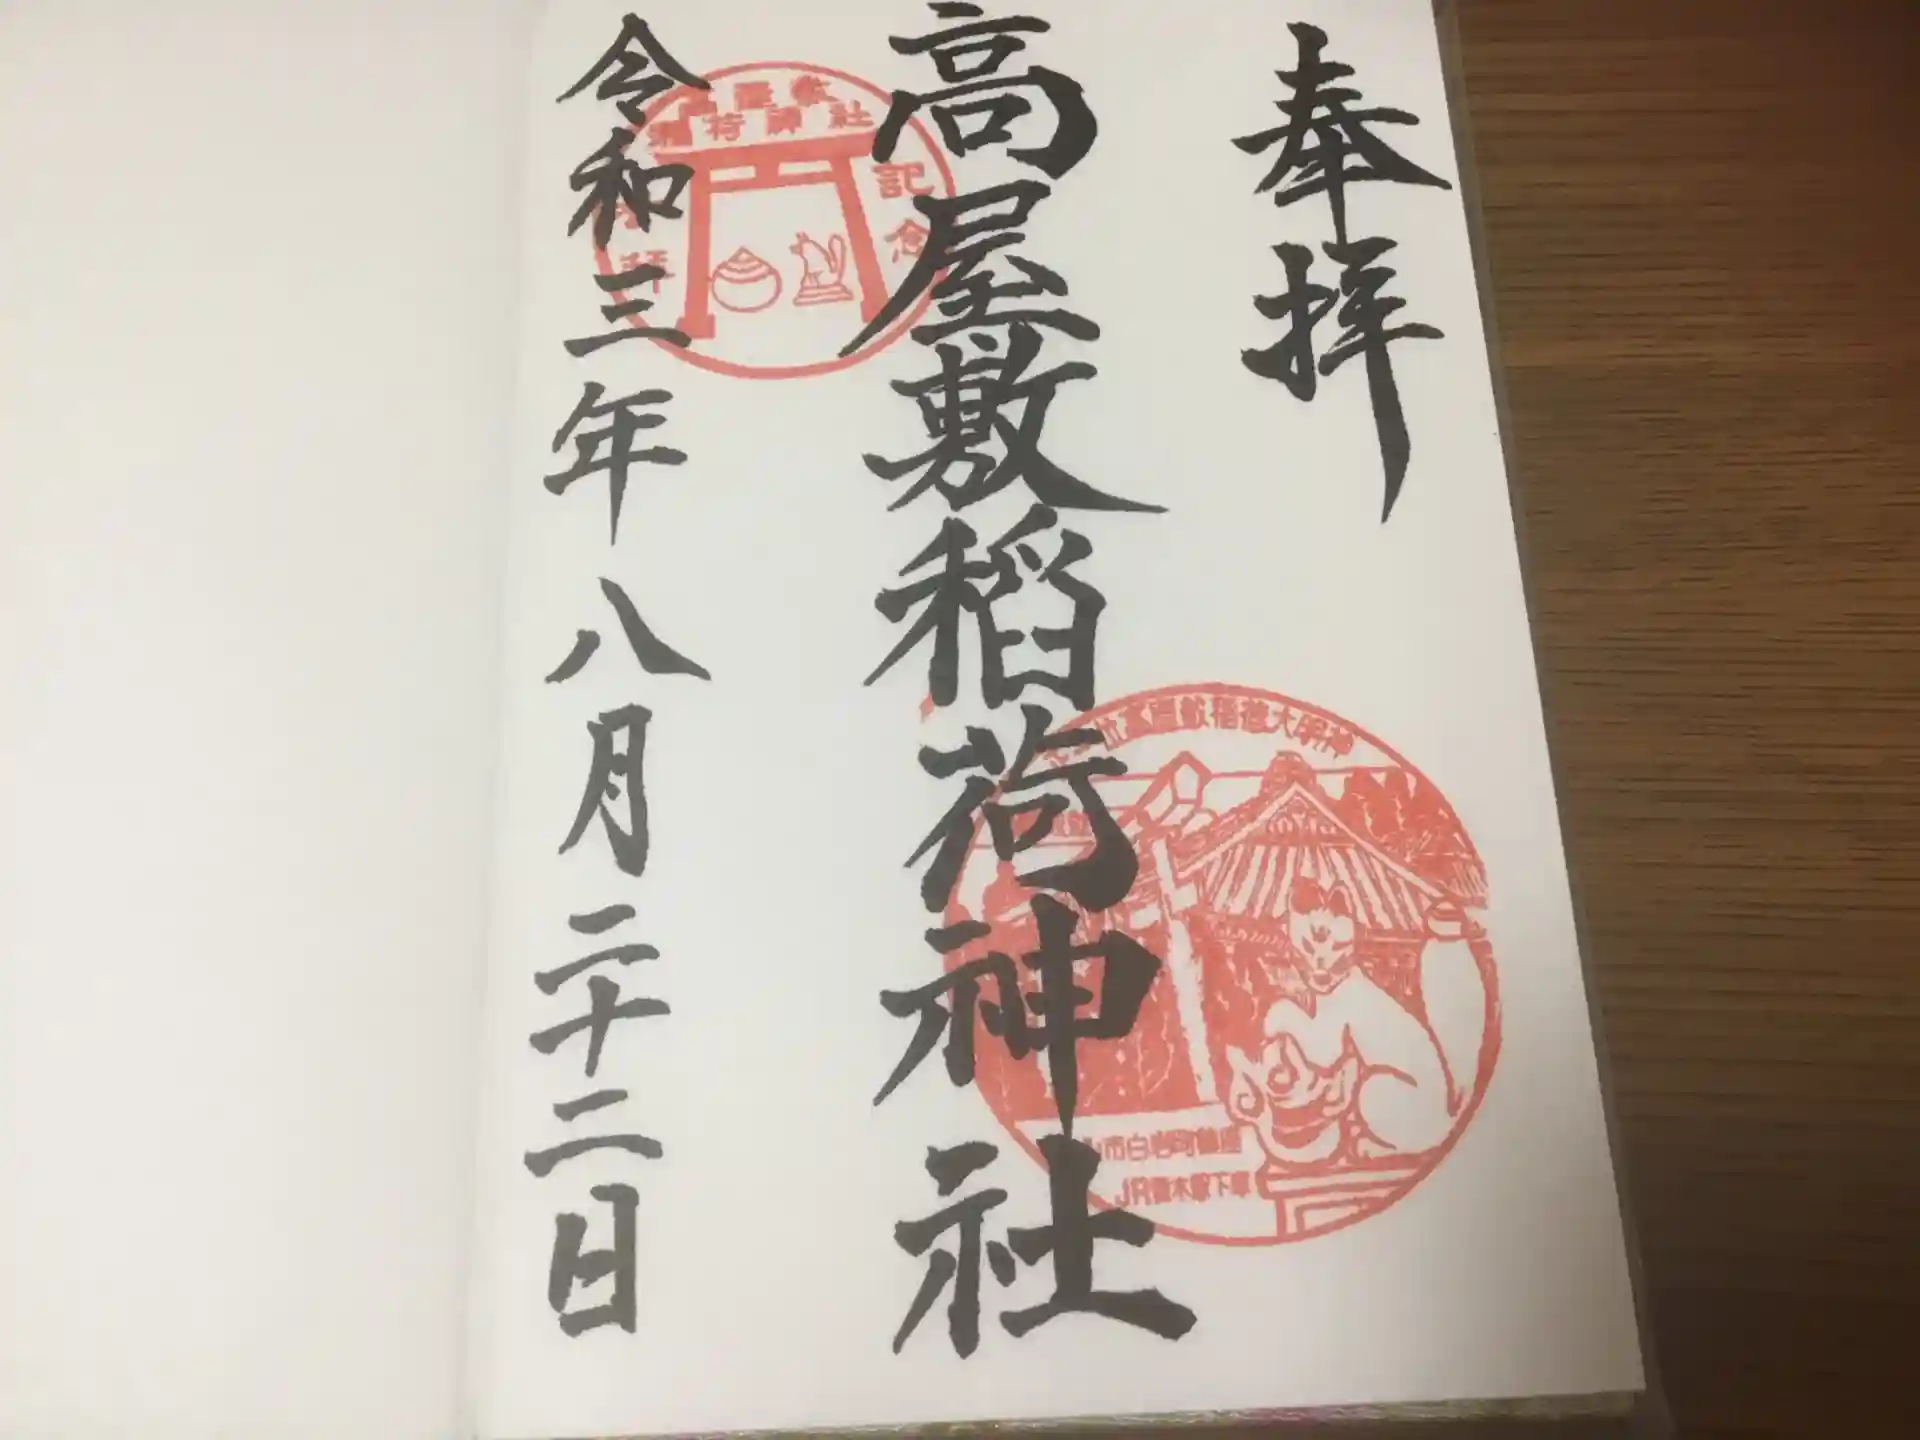 奉拝
高屋敷稲荷神社
令和三年八月二十二日
稲荷神社
記念
正一位高屋敷稲荷大明神
山市白岩町
JR
木駅下車